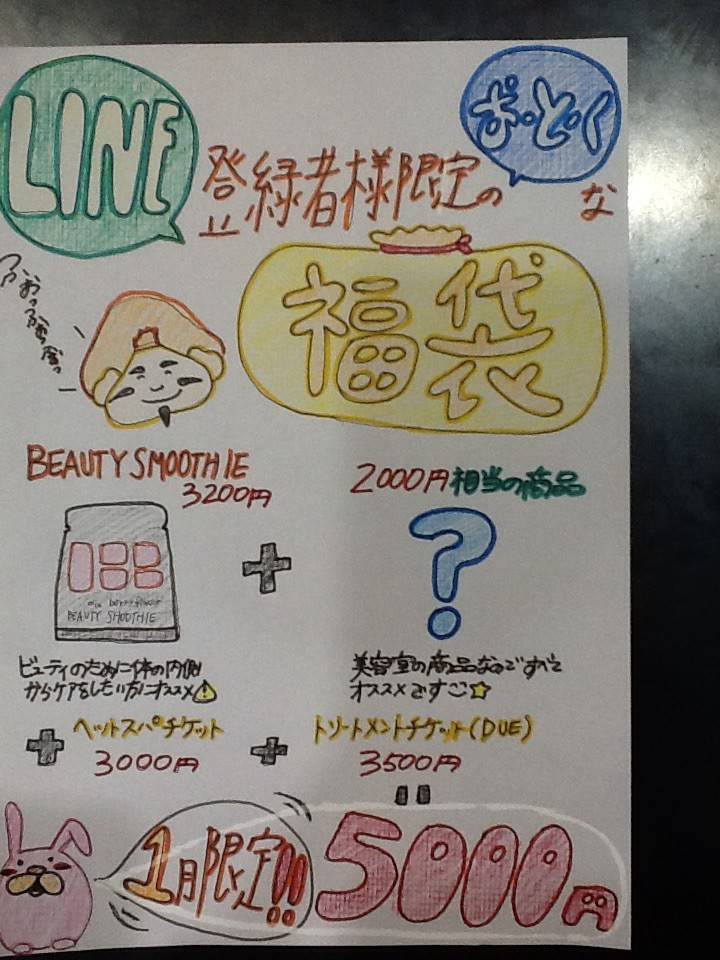 LINE
登録者様限定の
お・と・く
な
福袋
BEAUTY SMOOTHIE
3200円
2000円相当の商品
+
?
mix berry flavor
BEAUTY SMOOTHIE
ビューティのために体の内側
からケアをしたい方にオススメ
美容室の商品なのですべて
オススメですご☆
+ ヘットスパチケット
3000円
+ トリートメントチケット(DUE)
3500円
=
1月限定!!
5000円